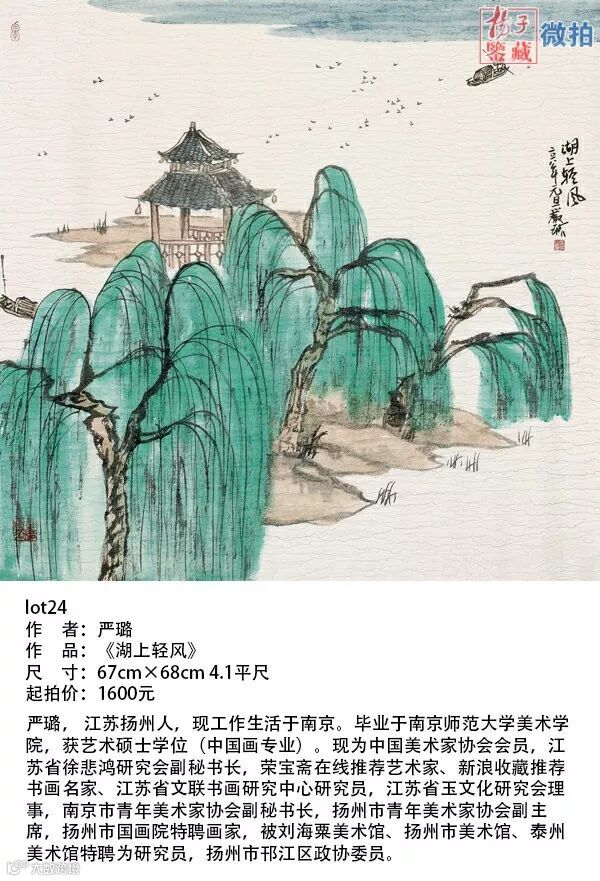 扬子
鉴藏
微拍
湖上轻风
二〇一八年元旦严璐
lot24
作 者：严璐
作 品：《湖上轻风》
尺 寸：67cm×68cm 4.1平尺
起拍价：1600元
严璐， 江苏扬州人，现工作生活于南京。毕业于南京师范大学美术学
院，获艺术硕士学位（中国画专业）。现为中国美术家协会会员，江
苏省徐悲鸿研究会副秘书长，荣宝斋在线推荐艺术家、新浪收藏推荐
书画名家、江苏省文联书画研究中心研究员，江苏省玉文化研究会理
事，南京市青年美术家协会副秘书长，扬州市青年美术家协会副主
席，扬州市国画院特聘画家，被刘海粟美术馆、扬州市美术馆、泰州
美术馆特聘为研究员，扬州市邗江区政协委员。